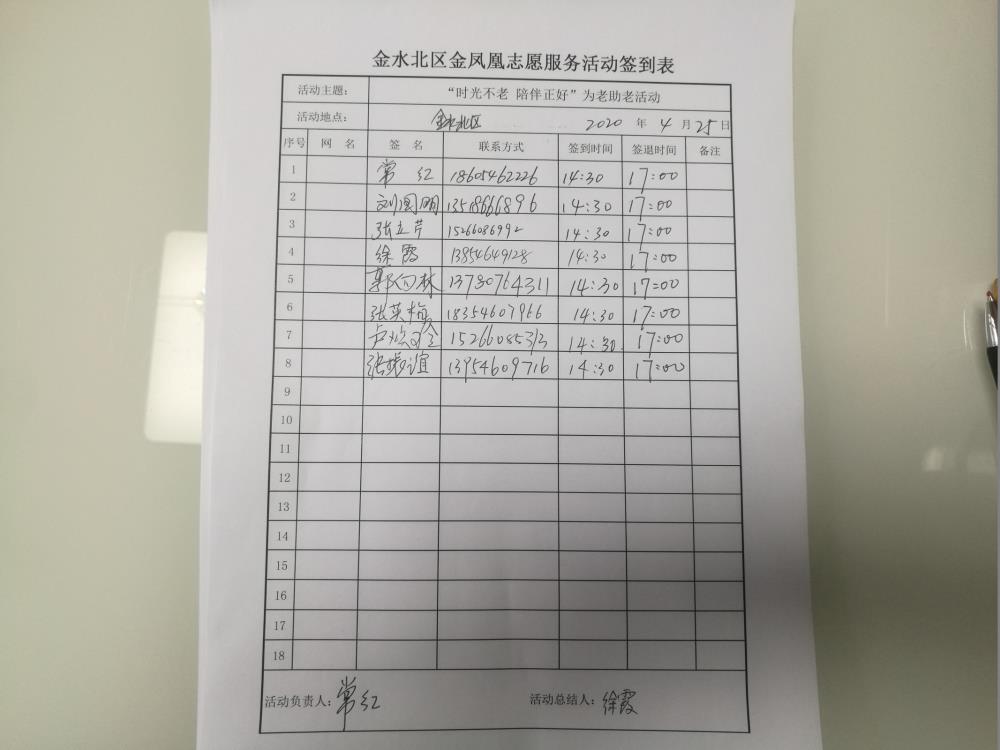 金水北区金凤凰志愿服务活动签到表
活动主题： “时光不老 陪伴正好”为老助老活动
活动地点： 金水北区 2020 年 4 月 25 日
序号 网 名 签 名 联系方式 签到时间 签退时间 备注
1 常 红 18605462226 14:30 17:00
2 刘国明 13518666896 14:30 17:00
3 张立芹 15266086992 14:30 17:00
4 徐霞 13854649128 14:30 17:00
5 郭向林 13780764311 14:30 17:00
6 张英梅 18354607966 14:30 17:00
7 15266085313 14:30 17:00
8 张振谊 13954609716 14:30 17:00
9
10
11
12
13
14
15
16
17
18
活动负责人： 常红 活动总结人： 徐霞